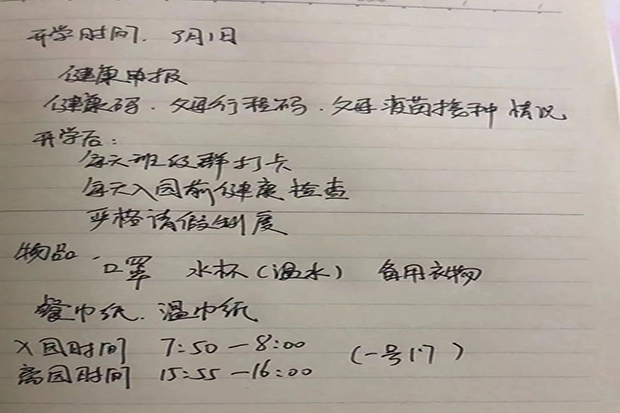 开学时间. 3月1日
健康申报
健康码. 父母行程码. 父母疫苗接种情况
开学后:
每天班级群打卡
每天入园前健康检查
严格请假制度
物品. 口罩 水杯(温水) 备用衣物
餐巾纸. 湿巾纸
入园时间 7:50-8:00 (一号门)
离园时间 15:55-16:00